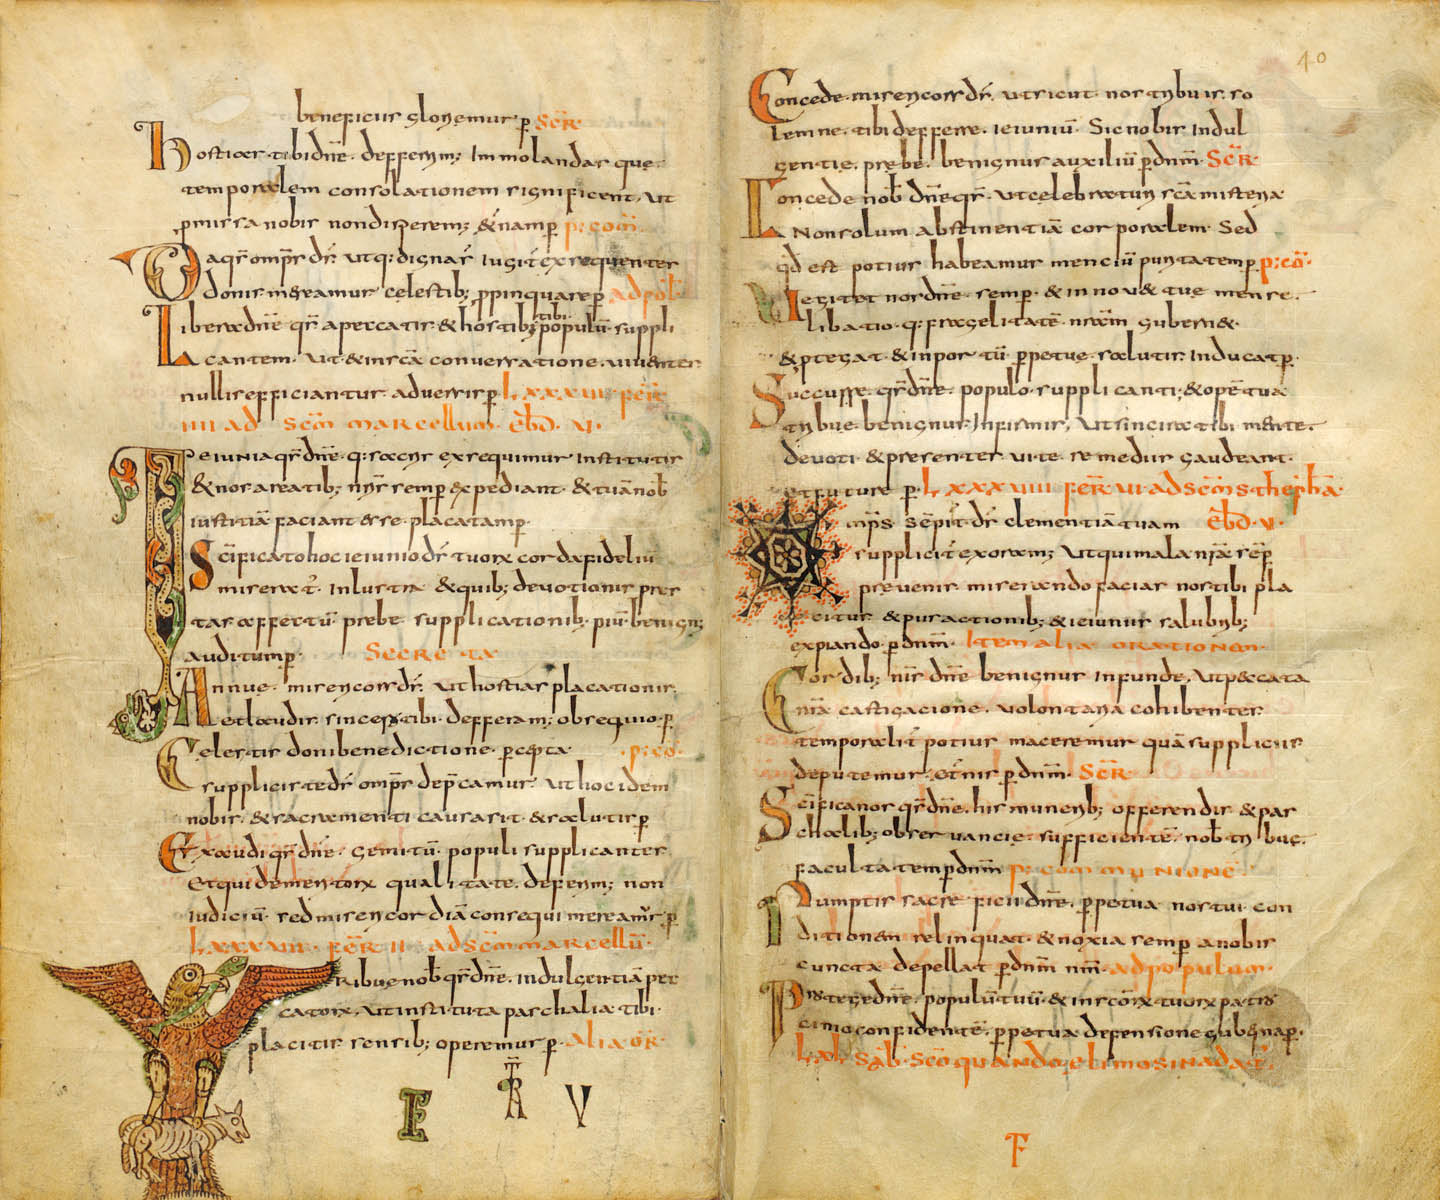 beneficiis gloriemur p̄ SēR
hostias tibi dn̄e defferim; Immolandas que
temporalem consolationem significent, ut
p̄missa nobis non disperem; & ńam p̄ p: com̄
Da qs̄ omp̄s ds̄ ut q: dignaŕ iugit́ exsequentes
donis mereamur cęlestib; p̄pinquare p̄ ad pōl
Libera dn̄e qs̄ a peccatis & hostib; tibi populū suppli
cantem ut & in sc̄a conversatione viventes
nullis efficiantur adversis p̄ LXXXVII fer̄
IIII ad sc̄m marcellum ebd̄ VI
Ieiunia qs̄ dn̄e q: sacris exsequimur institutis
& nos a reatib; nr̄is semp̄ expediant & tuā nob̄
iustitiā faciant esse placatam p̄
Sc̄ificato hoc ieiunio ds̄ tuorx corda fideliū
miserat́ inlustra & quib; devotionis pres
tas affectū prebe supplicationib; piū benign;
auditum p̄ SECRETA
Annue misericors ds̄ ut hostias placationis
et laudis sincera tibi defferam; obsequio p̄
Celestis doni benedictione p̄cepta p: co
supplicis te ds̄ omp̄s dep̄camur ut hoc idem
nobis & sacramenti causa sit & salutis p̄
Exaudi qs̄ dn̄e gemitū populi supplicantes
Et qui de meritorx qualitate deferim; non
iudiciū sed misericordiā consequi mereamur p̄
LXXXVIII fer̄ II ad sc̄m marcellū
Tribue nob̄ qs̄ dn̄e indulgentiā pec
catorx ut instituta paschalia tibi
placitis sensib; operemur p̄ Alia oR̄
E R V
40
Concede misericors ds̄ ut sicut nos tribuis so
lemne tibi defferre ieiuniū Sic nobis indul
gentię prębe benignus auxiliū p̄ dnm̄ SēR
Concede nob̄ dn̄e qs̄ ut celebraturi sc̄a misteria
Non solum abstinentiā corporalem Sed
qd̄ est potius habeamus menciū puritatem p̄ p: cō
Vegitet nos dn̄e semp̄ & innov& tuę mense
libatio q: fragelitatē nram̄ gubern&
& p̄tegat & in portū p̄petuę salutis inducat p̄
Succurre qs̄ dn̄e populo supplicanti; & opē tua
tribue benignus Infirmis, ut sincira tibi mente
devoti & presentes vite remediis gaudeant
et future p̄ LXXXVIIII fer̄ VI ad sc̄m stephā
Omp̄s semp̄it ds̄ clementiā tuam ebd̄ V
supplicit́ exoram; ut qui mala nr̄a semp̄
prevenis miserando facias nos tibi pla
citus & puractionib; & ieiuniis salubrib;
expiando p̄ dnm̄ Item alia orationem
Cordib; nr̄is dn̄e benignus Infunde, ut peccata
nr̄a castigacione volontaria cohibentes
temporalit́ potius maceremur quā suppliciis
deputemur etńis p̄ dnm̄ SēR
Sc̄ificanos qs̄ dn̄e his munerib; offerendis & pas
chalib; observancię sufficientē nob̄ tribue
facultatem p̄ dnm̄ p: communionē
Sumpti sacrificii dn̄e p̄petua nos tui con
ditionem relinquat & noxia semp̄ a nobis
cuncta depellat p̄ dnm̄ nm̄ ad populum
Protege dn̄e populū tuū & in sc̄orx tuorx patro
cinio confidentē p̄petua defensione guberna p̄
LXL Sab̄ Sc̄o quando elimosina dat̄
F